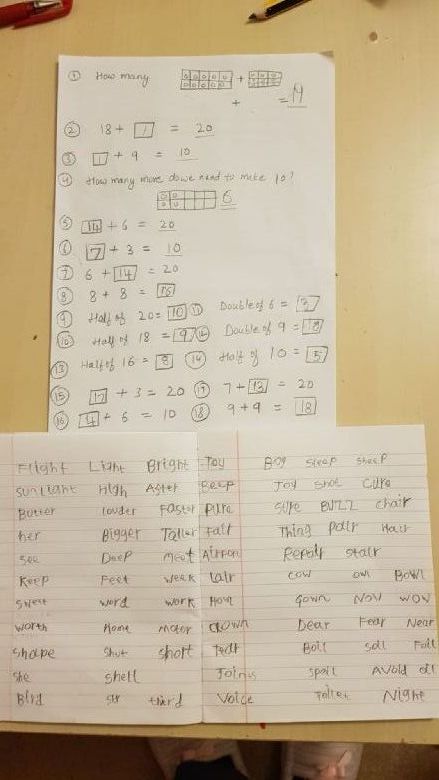 ① How many + 
+ = 19
② 18 + 1 = 20
③ 1 + 9 = 10
④ How many more do we need to make 10?
6
⑤ 14 + 6 = 20
⑥ 7 + 3 = 10
⑦ 6 + 14 = 20
⑧ 8 + 8 = 16
⑨ Half of 20 = 10 ⑪ Double of 6 = 3
⑩ Half of 18 = 9 ⑫ Double of 9 = 18
⑬ Half of 16 = 8 ⑭ Half of 10 = 5
⑮ 17 + 3 = 20 ⑰ 7 + 13 = 20
⑯ 4 + 6 = 10 ⑱ 9 + 9 = 18
Flight Light Bright Toy Boy Steep Sheep
Sunlight High After Beep Joy Shot Cure
Butter louder Faster Pure Sure BUZZ chair
her Bigger Taller Fair Thing Pair Hair
See Deep Meet Airport Repair Stair
Keep Feet week Lair cow owl Bowl
Sweet word work How Gown Now wow
worth Home motor Clown Dear Fear Near
Shape Shut short Tear Boil soil Foil
She shell Joining Spoil Avoid oil
Bird Sir third Voice Toilet Night